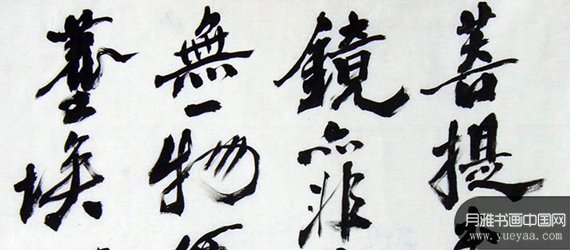 菩提
鏡亦非
無一物
塵埃
月雅书画中国网
www.yueyaa.com